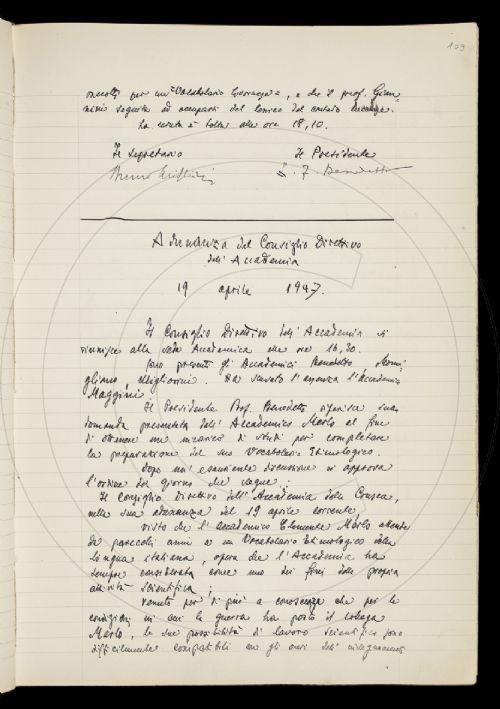 109
raccolti per un "Vocabolario lucchese", e che il prof. Giam-
mini seguita ad occuparsi del lessico del contado
La seduta è tolta alle ore 18,10.
Il Segretario Il Presidente
Bruno Migliorini
Adunanza del Consiglio Direttivo
dell'Accademia
19 aprile 1947.
Il Consiglio Direttivo dell'Accademia si
riunisce alla sede Accademica alle ore 16,30.
Sono presenti gli Accademici Benedetto, Momi-
gliano, Migliorini. Ha scusato l'assenza l'Accademico
Maggini
Il Presidente Prof. Benedetto riferisce sulla
domanda presentata dall'Accademico Merlo al fine
di ottenere un incarico di studi per completare
la preparazione del suo Vocabolario Etimologico.
Dopo un'esauriente discussione si approva
l'ordine del giorno che segue:
Il Consiglio Direttivo dell'Accademia della Crusca,
nella sua adunanza del 19 aprile corrente
visto che l'accademico Clemente Merlo attende
da parecchi anni a un Vocabolario Etimologico della
lingua italiana, opera che l'Accademia ha
sempre considerata come uno dei fini della propria
attività scientifica,
venuto per di più a conoscenza che per le
condizioni in cui la guerra ha posto il collega
Merlo, le sue possibilità di lavoro scientifico sono
difficilmente compatibili con gli oneri dell'insegnamento